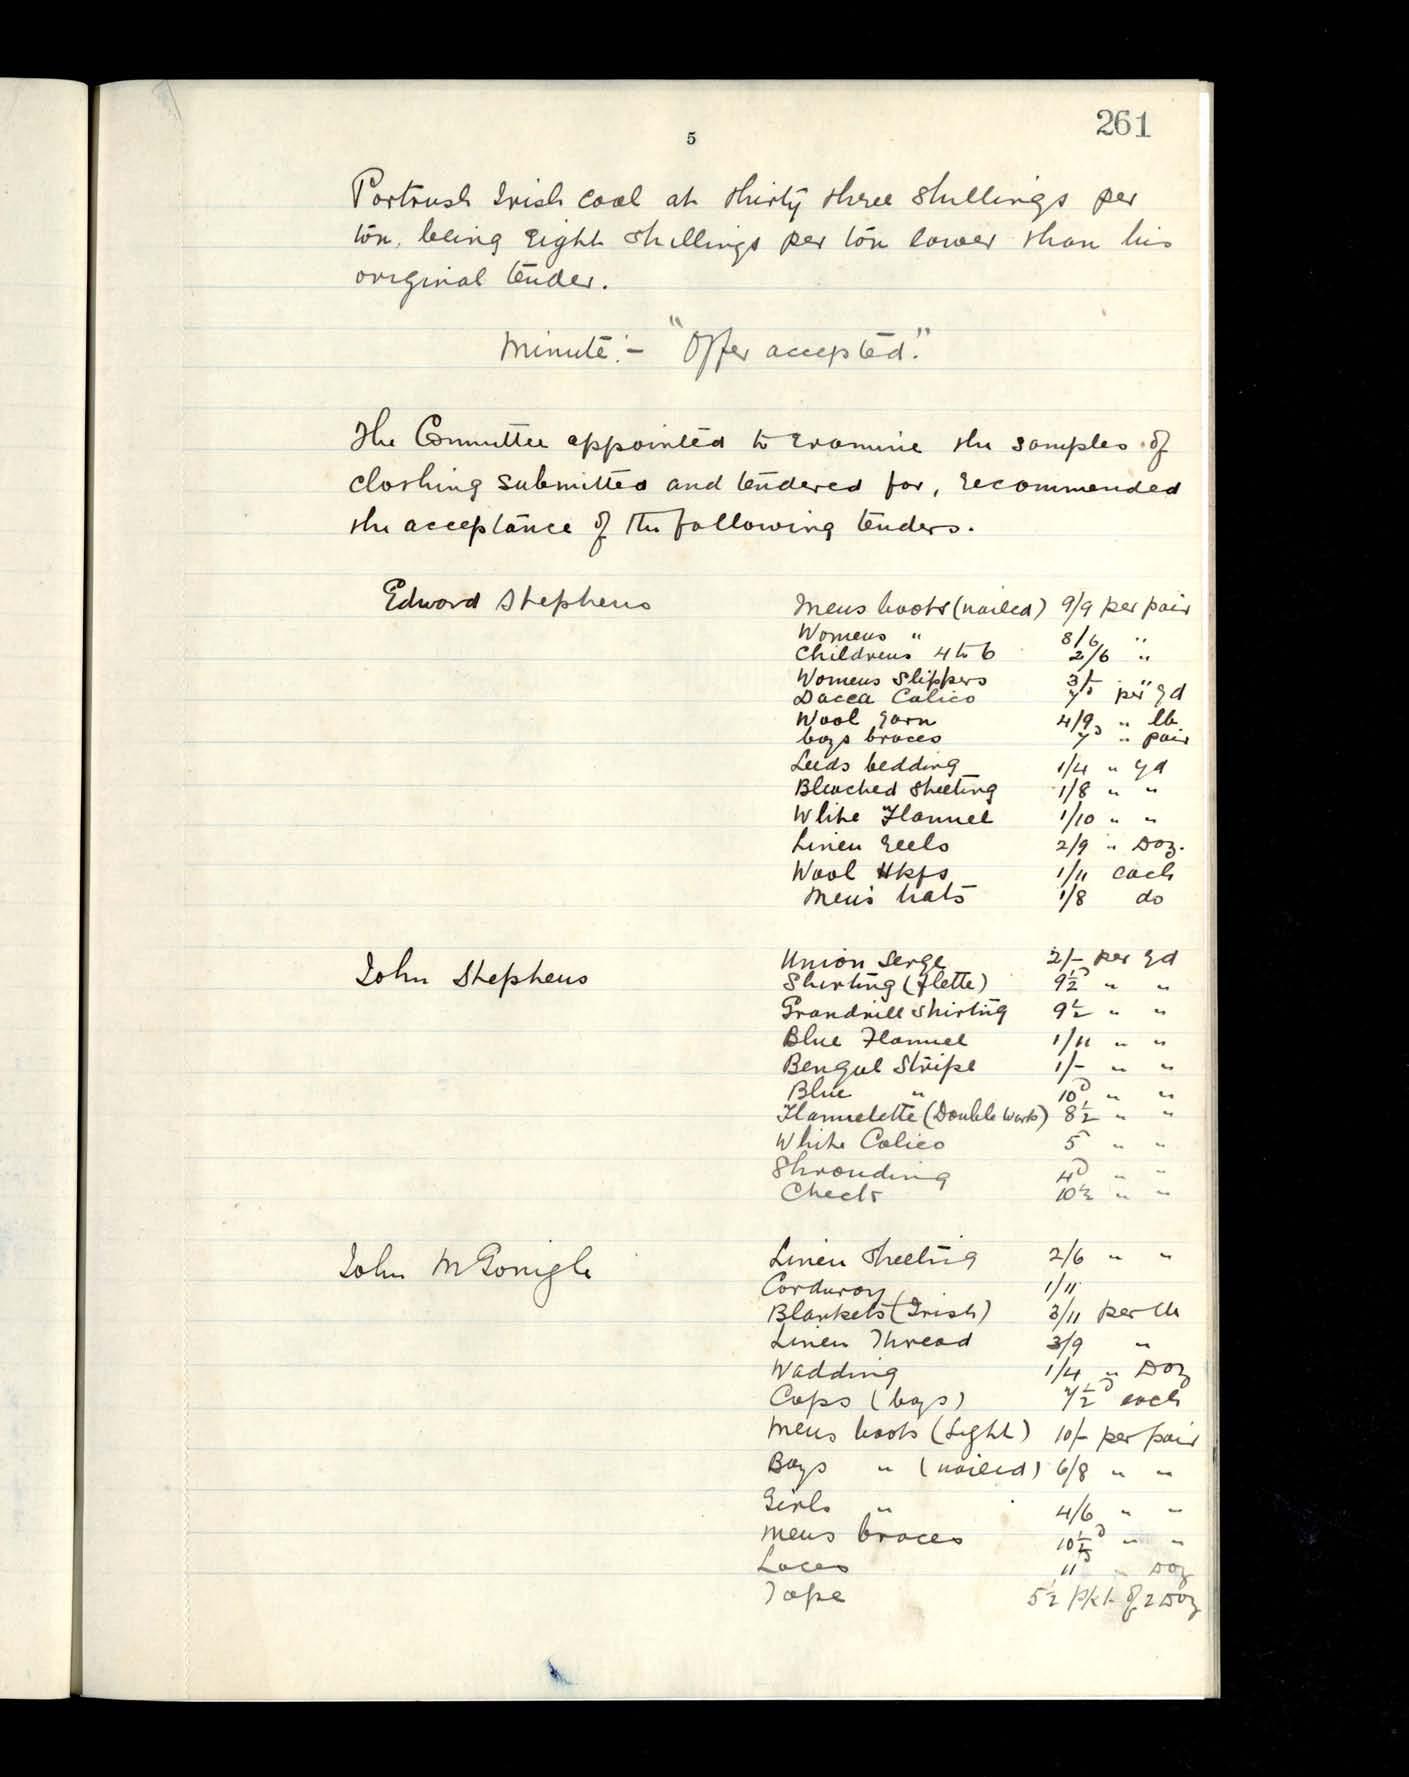 261
5
Portrush Irish coal at thirty three shillings per
ton, being eight shillings per ton lower than his
original tender.
Minute:- "Offer accepted."
The Committee appointed to examine the samples of
clothing submitted and tendered for, recommended
the acceptance of the following tenders.
Edward Stephens Mens boots (nailed) 9/9 per pair
Womens " 8/6 "
Childrens 4 to 6 2/6 "
Womens Slippers 3/- "
Dacca Calico 7d per yd
Wool yarn 4/9 " lb
boys braces 7d " pair
Leeds bedding 1/4 " yd
Bleached Sheeting 1/8 " "
White Flannel 1/10 " "
Linen reels 2/9 " Doz.
Wool Hkfs 1/11 each
Men's hats 1/8 do
John Stephens Union Serge 2/- per yd
Shirting (Flette) 9½d " "
Grandrill Shirting 9½ " "
Blue Flannel 1/11 " "
Bengal Stripe 1/- " "
Blue " 10d " "
Flannelette (Double Warp) 8½ " "
White Calico 5 " "
Shrouding 4d " "
Check 10½ " "
John McGonigle Linen Sheeting 2/6 " "
Corduroy 1/11
Blankets (Irish) 3/11 per lb
Linen Thread 3/9 "
Wadding 1/4 " Doz
Caps (boys) 7½d each
Mens boots (Light) 10/- per pair
Boys " (nailed) 6/8 " "
Girls " 4/6 " "
Mens braces 10½d " "
Laces 11d " Doz
Tape 5½ Pkt of 2 Doz